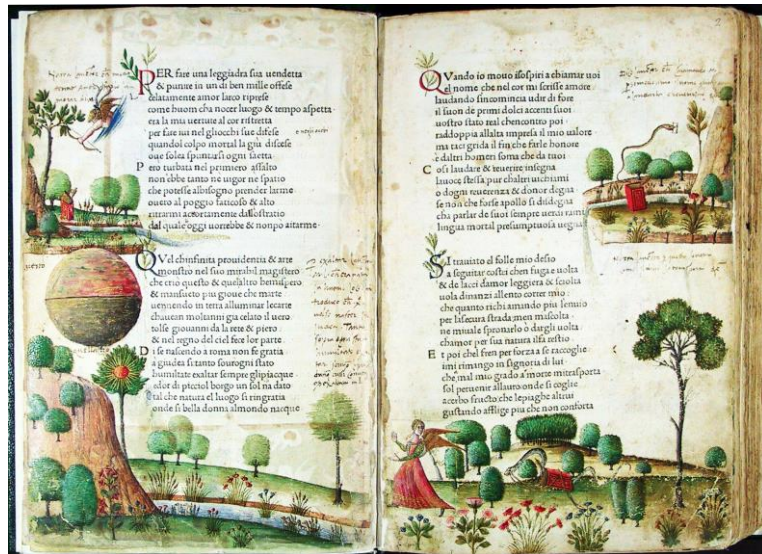 PER fare una leggiadra sua uendetta
& punire in un di ben mille offese
celatamente amor larco riprese
come huom cha nocer luogo & tempo aspetta
era la mia uertute al cor ristretta
per fare iui nel gliocchi sue difese
quandol colpo mortal la giu discese
oue solea spuntarsi ogni saetta
Pero turbata nel primiero assalto
non ebbe tanto ne uigor ne spatio
che potesse albisogno prender larme
ouero al poggio faticoso & alto
ritrarmi accortamente dallostratio
dal quale oggi uorrebbe & nonpo aitarme
QVel chinfinita prouidentia & arte
monstro nel suo mirabil magistero
che crio questo & quelaltro hemispero
& mansueto piu gioue che marte
uenendo in terra alluminar lecarte
chauean moltanni gia celato il uero
tolse giouanni da la rete & piero
& nel regno del ciel fece lor parte
Di se nascendo a roma non fe gratia
a giudea si tanto sourogni stato
humiltate exaltar sempre gli piacque
ador di picciol borgo un sol na dato
tal che natura el luogo si ringratia
onde si bella donna almondo nacque
2
QVando io mouo isospiri a chiamar uoi
el nome che nel cor mi scrisse amore
laudando sincomincia udir di fore
il suon de primi dolci accenti suoi
uostro stato real chencontro poi
raddoppia allalta impresa il mio ualore
ma taci grida il fin che farle honore
e daltri homeri soma che da tuoi
Cosi laudare & reuerire insegna
lauoce stessa pur chaltri uichiami
o dogni reuerenza & donor degna
se non che forse apollo si disdegna
cha parlar de suoi sempre uerdi rami
lingua mortal presumptuosa uegna
SI trauiato el folle mio desio
a seguitar costei chen fuga e uolta
& de lacci damor leggiera & sciolta
uola dinanzi allento correr mio
che quanto richi amando piu lenuio
per lasecura strada men mascolta
ne miuale spronarlo o dargli uolta
chamor per sua natura ilfa restio
Et poi chel fren per forza a se raccoglie
imi rimango in signoria di lui
che mal mio grado a morte mitrasporta
sol peruenir allauro onde si coglie
acerbo fructo che lepiaghe altrui
gustando afflige piu che non conforta